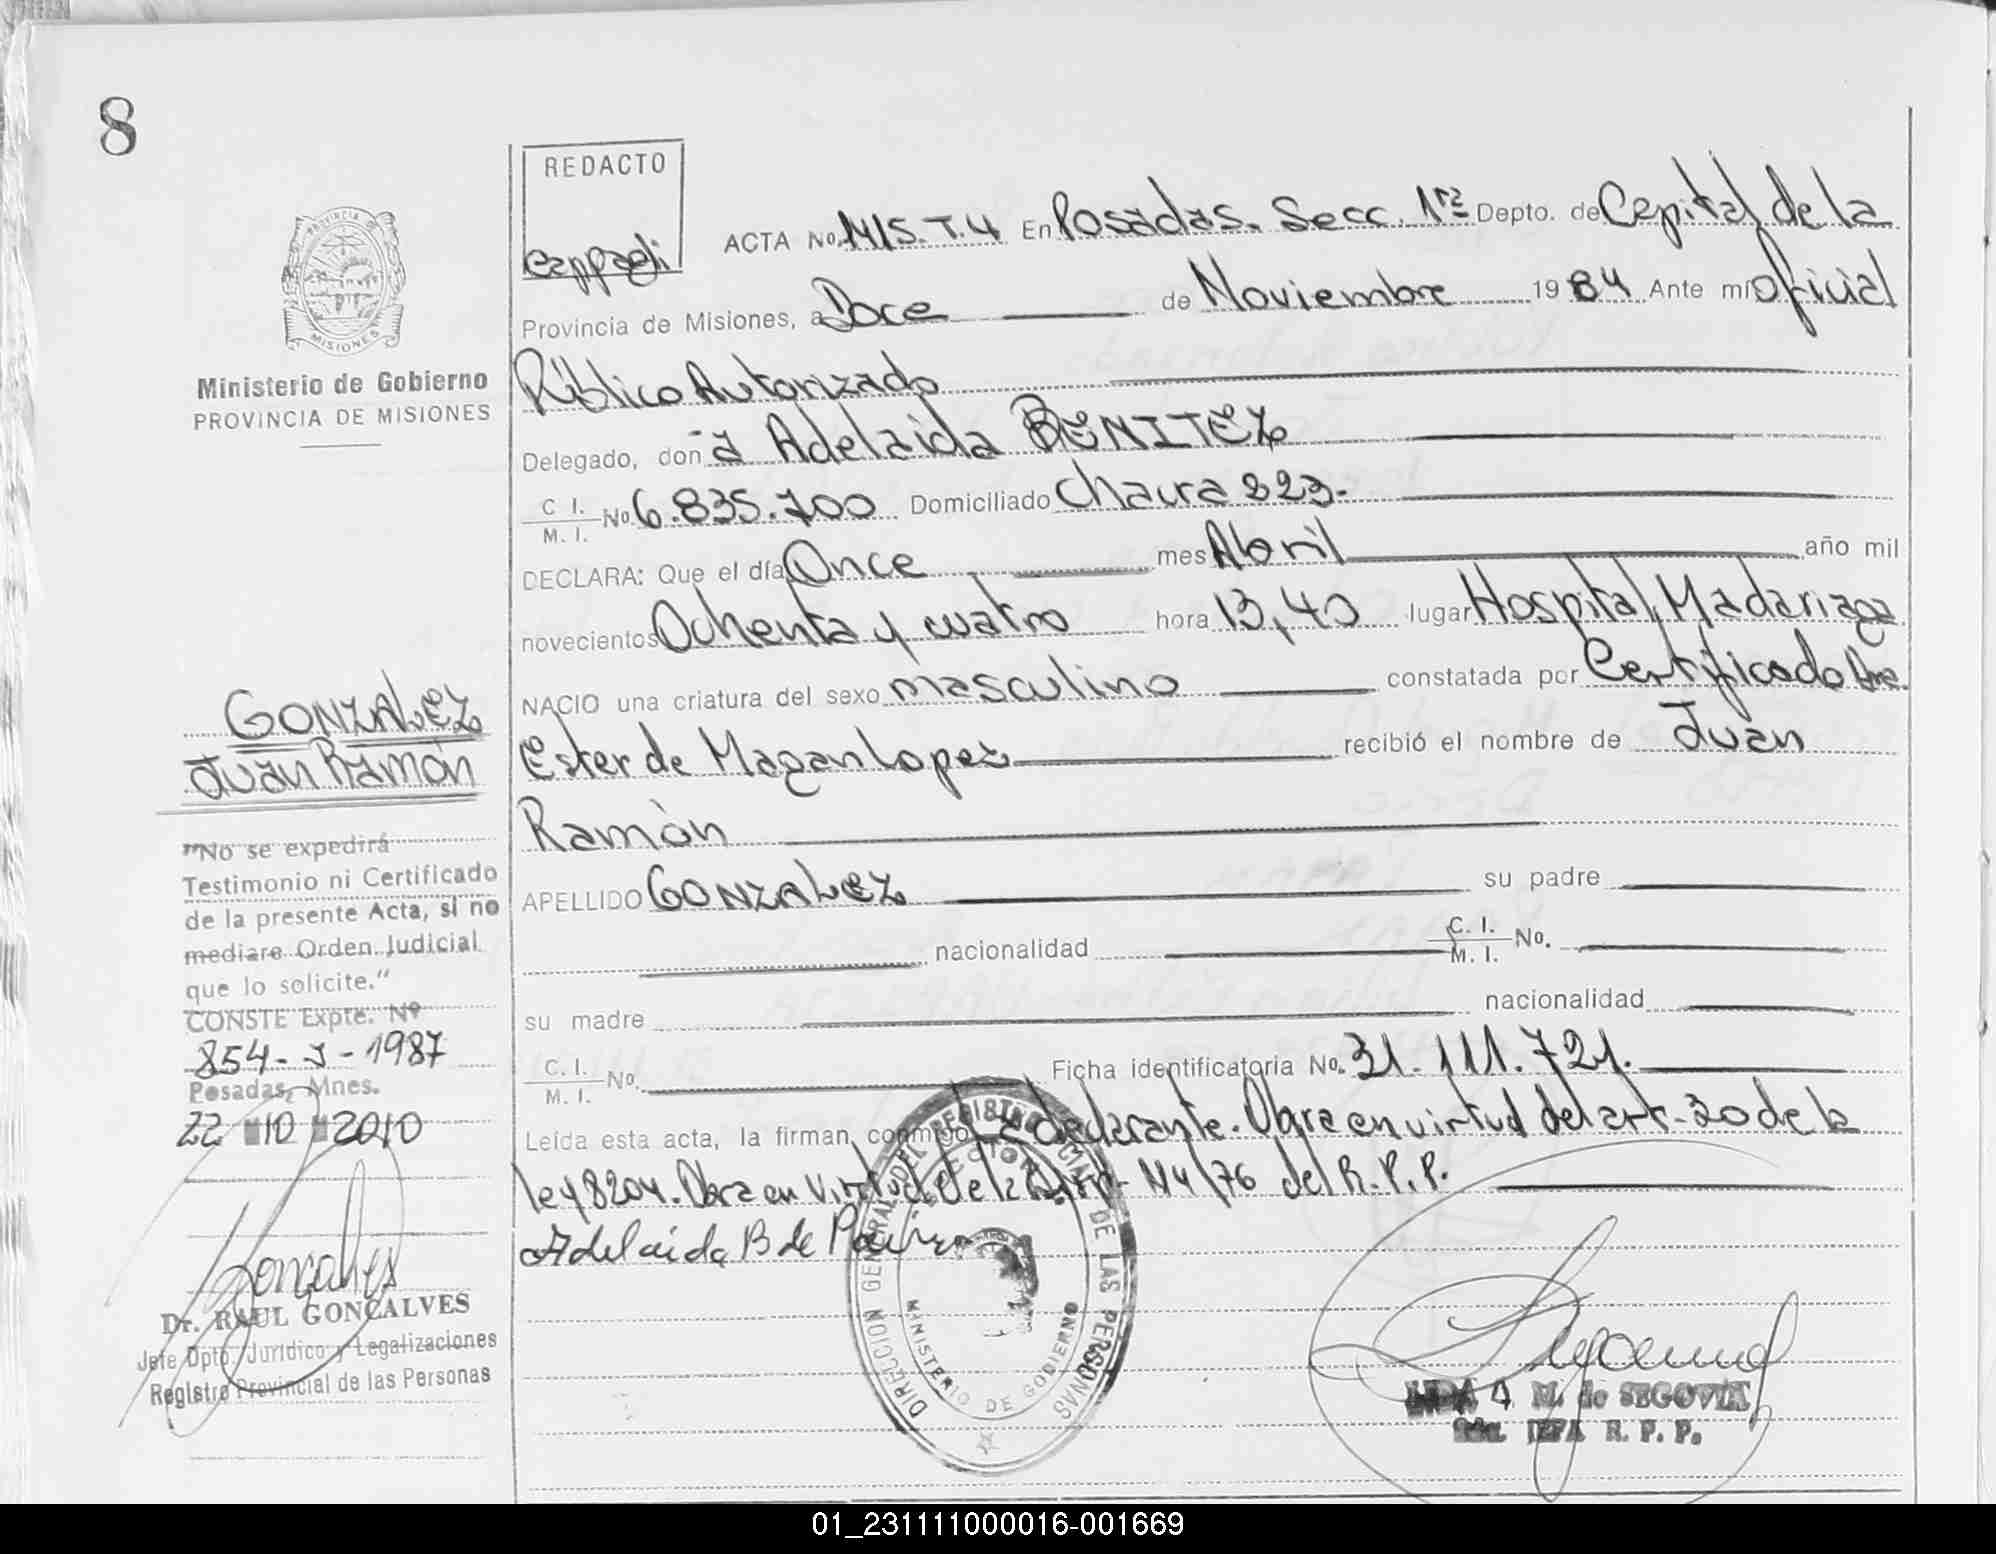 8
REDACTO
cappagli
PROVINCIA DE
MISIONES
Ministerio de Gobierno
PROVINCIA DE MISIONES
ACTA No. M/S.T.4 En Posadas. Secc. 1ra Depto. de Capital de la
Provincia de Misiones, a Doce de Noviembre 1984 Ante mí Oficial
Público Autorizado
Delegado, doña Adelaida BENITEZ
C. I.
M. I. No. 6.835.700 Domiciliado Chacra 223.
DECLARA: Que el día Once mes Abril año mil
novecientos Ochenta y cuatro hora 13,40 lugar Hospital Madariaga
NACIO una criatura del sexo masculino constatada por Certificado
Ester de Magan Lopez recibió el nombre de Juan
Ramòn
APELLIDO GONZALEZ su padre
nacionalidad C. I.
M. I. No.
su madre nacionalidad
C. I.
M. I. No. Ficha identificatoria No. 31.111.721.
Leída esta acta, la firman conmigo La declarante. Obra en virtud del art. 20 de la
ley 8204. Obra en virtud de la 114/76 del R.P.P.
Adelaida B de
GONZALEZ
Juan Ramón
"No se expedirá
Testimonio ni Certificado
de la presente Acta, si no
mediare Orden Judicial
que lo solicite."
CONSTE Expte. Nº
854-J-1987
Posadas, Mnes.
22 10 2010
Gonçalves
Dr. RAUL GONÇALVES
Jefe Dpto. Jurídico y Legalizaciones
Registro Provincial de las Personas
DIRECCION GENERAL DEL REGISTRO PROVINCIAL DE LAS PERSONAS
MINISTERIO DE GOBIERNO
M. de SEGOVIA
JEFA R. P. P.
01_231111000016-001669